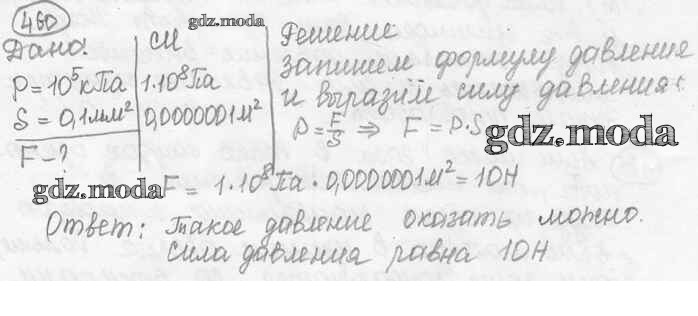 460
gdz.moda
Дано:
СИ
P = 10⁵ кПа
1·10⁸ Па
S = 0,1 мм²
0,0000001 м²
F - ?
Решение
Запишем формулу давления
и выразим силу давления:
P = F/S ⇒ F = P·S
gdz.moda
gdz.moda
F = 1·10⁸ Па · 0,0000001 м² = 10Н
Ответ: Такое давление оказать можно.
Сила давления равна 10Н